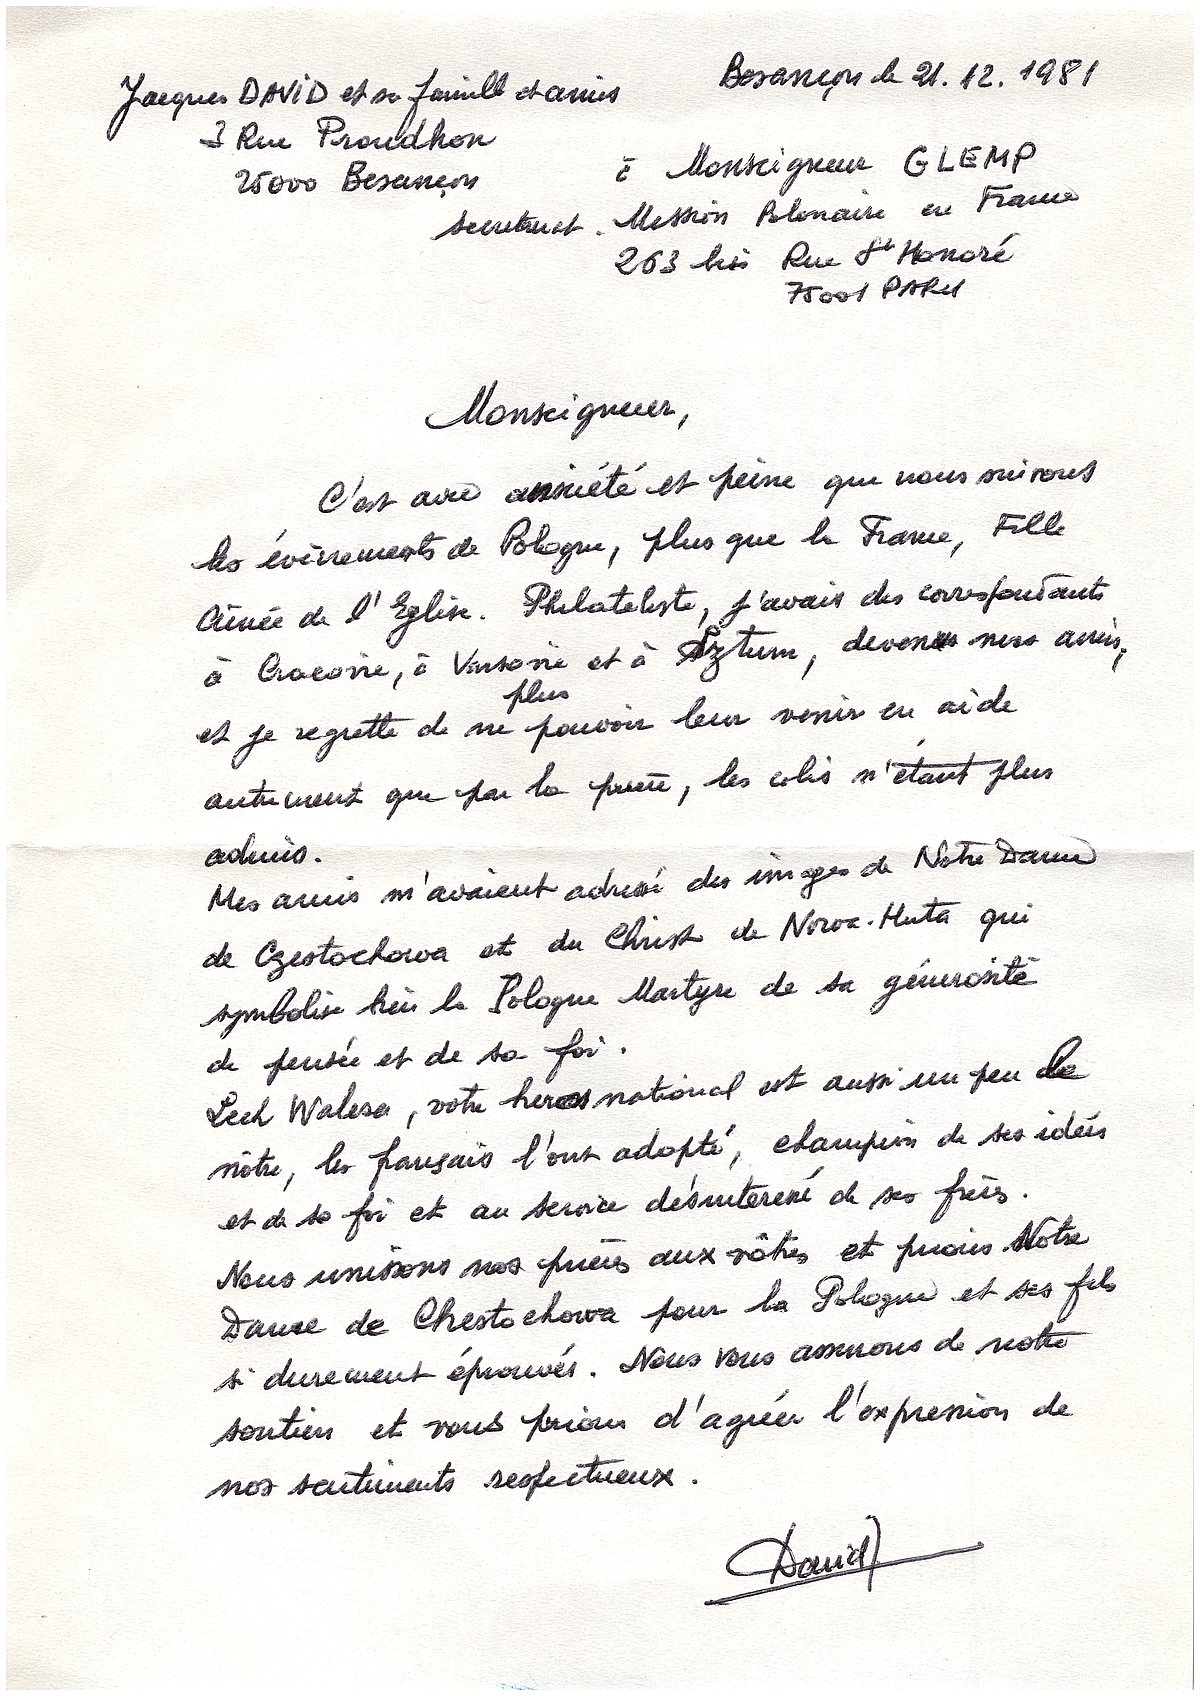 Besançon le 21.12.1981
Jacques DAVID et sa famille et amis
3 Rue Proudhon
25000 Besançon
à Monseigneur GLEMP
secretariat. Mission Polonaise en France
263 bis Rue St Honoré
75001 PARIS
Monseigneur,
C'est avec anxiété et peine que nous suivons
les évènements de Pologne, plus que la France, Fille
Ainée de l'Eglise. Philateliste, j'avais des correspondants
à Cracovie, à Varsovie et à Sztum, devenus nos amis,
et je regrette de ne plus pouvoir leur venir en aide
autrement que par la prière, les colis n'étant plus
admis.
Mes amis m'avaient adressé des images de Notre Dame
de Czestochowa et du Christ de Nowa-Huta qui
symbolise bien la Pologne Martyre de sa générosité
de pensée et de sa foi.
Lech Walesa, votre heros national est aussi un peu le
nôtre, les français l'ont adopté, champion de ses idées
et de sa foi et au service désinteressé de ses frères.
Nous unissons nos prières aux vôtres et prions Notre
Dame de Chestochowa pour la Pologne et ses fils
si durement éprouvés. Nous vous assurons de notre
soutien et vous prions d'agréer l'expression de
nos sentiments respectueux.
David